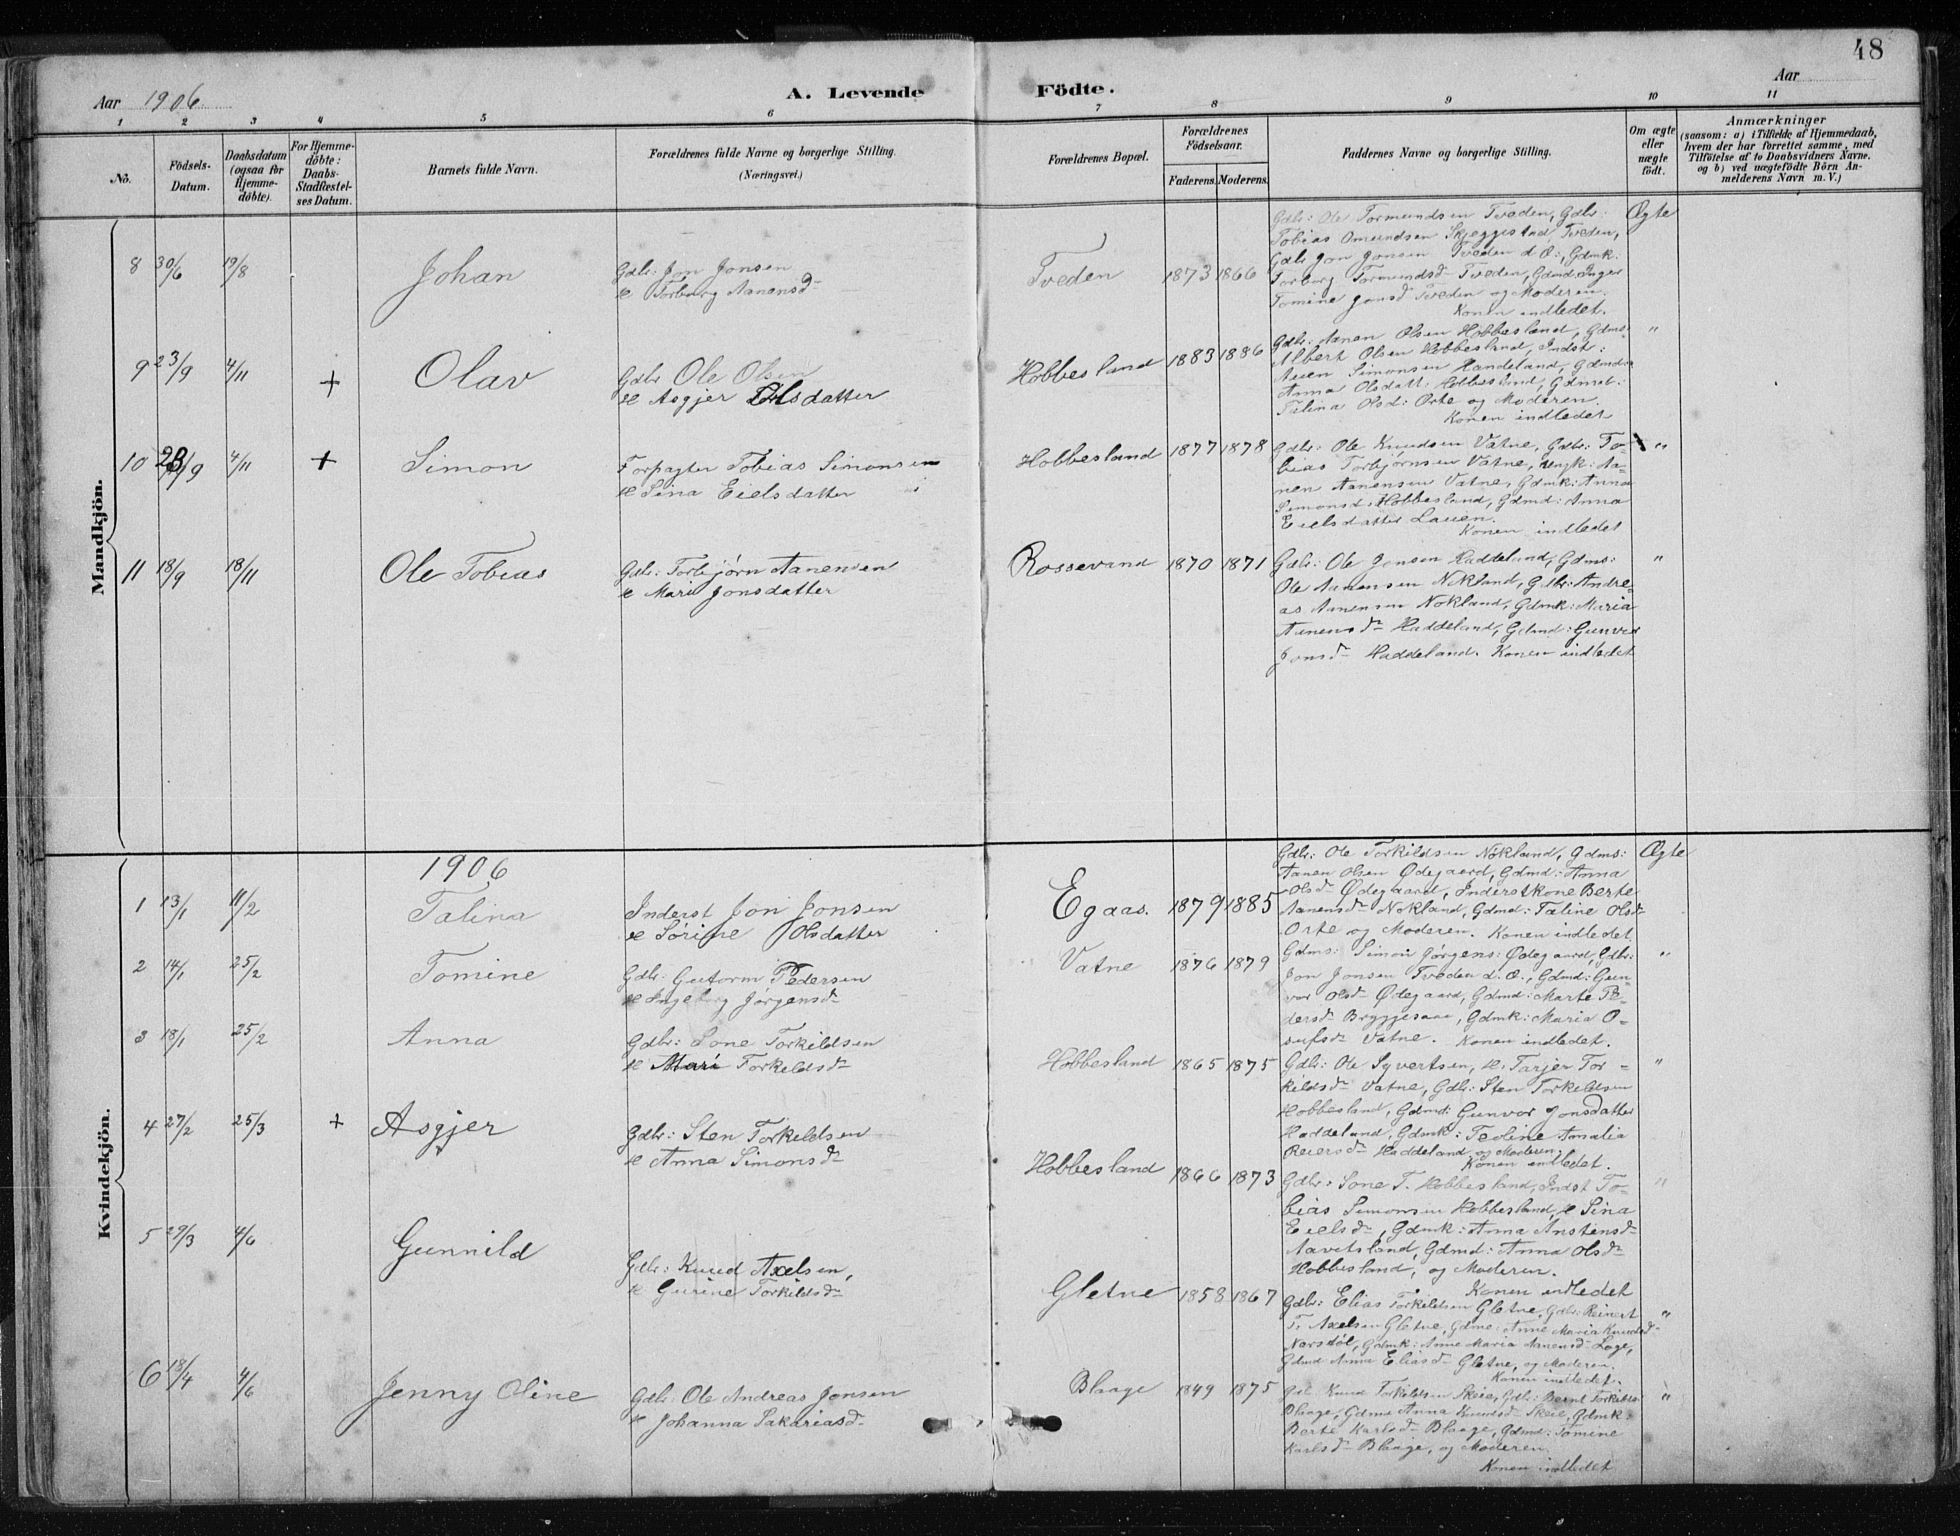 48
Aar 1906
A. Levende Födte.
Aar
1 2 3 4 5 6 7 8 9 10 11
No.
Födsels-
Datum.
Daabsdatum
(ogsaa for
Hjemme-
döbte).
For Hjemme-
döbte:
Daabs-
Stadfæstel-
ses Datum.
Barnets fulde Navn.
Forældrenes fulde Navne og borgerlige Stilling.
(Næringsvei.)
Forældrenes Bopæl.
Forældrenes
Födselsaar.
Faderens. Moderens.
Faddernes Navne og borgerlige Stilling.
Om ægte
eller
uægte
födt.
Anmærkninger
(saasom: a) i Tilfælde af Hjemmedaab,
hvem der har forrettet samme, med
Tilföielse af to Daabsvidners Navne.
og b) ved uægtefödte Börn An-
melderens Navn m. V.)
Mandkjön.
8 30/6 19/8 Johan
Gdbr: Jon Jonsen
& Torborg Aanensd
Tveden 1873 1866
Gdbr: Ole Tormundsen Tveden, Gdbr:
Tobias Omundsen Skjeggestad Tveden,
Gdbr Jon Jonsen Tveden d. Ø:, Gdmk:
Torborg Tormundsd Tveden, Gdmd Inger
Tomine Jonsd Tveden og Moderen.
Konen indledet.
Ægte
9 23/9 4/11 + Olav
Gdbr Ole Olsen
& Asgjer Olsdatter
Hobbesland 1883 1886
Gdbr: Aanen Olsen Hobbesland, Gdms:
Albert Olsen Hobbesland, Indst:
Auen Simonsen Handeland, Gdmd:
Anna Olsdatt: Hobbesland, Gdmd:
Talina Olsd: Orte og Moderen.
Konen indledet
"
10 23/9 4/11 + Simon
Forpagter Tobias Simonsen
& Sina Eielsdatter
Hobbesland 1877 1878
Gdbr: Ole Knudsen Vatne, Gdbr: To-
bias Torbjørnsen Vatne, ungk: Aa-
nen Aanensen Vatne, Gdmk: Anna
Simonsd: Hobbesland, Gdmd: Anna
Eielsdatter Lauen.
Konen indledet
"
11 18/9 18/11 Ole Tobias
Gdbr: Torbjørn Aanensen
& Mari Jonsdatter
Rossevand 1870 1871
Gdbr: Ole Jensen Haddeland, Gdms:
Ole Aanensen Nøkland, Gdbr: Andre-
as Aanensen Nøkland, Gdmk: Maria
Aanensd Haddeland, Gdmd: Gunvor
Jonsd Haddeland. Konen indledet
"
Kvindekjön.
1906
1 13/1 11/2 Talina
Inderst Jon Jonsen
& Sørine Olsdatter
Egaas. 1879 1885
Gdbr: Ole Torkildsen Nøkland, Gdms:
Aanen Olsen Ødegaard, Gdmd: Anna
Olsd Ødegaard, Inderstkone Berte
Aanensd Nøkland, Gdmd: Taline Olsd
Orte og Moderen. Konen indledet.
Ægte
2 14/1 25/2 Tomine
Gdbr: Gutorm Pedersen
& Ingeborg Jørgensd
Vatne 1876 1879
Gdms: Simon Jørgens: Ødegaard, Gdbr:
Jon Jonsen Tveden d. Ø., Gdmd: Gun-
vor Olsd Ødegaard, Gdmd: Marte Pe-
dersd Bryggesaa, Gdmk: Maria O-
sufsd Vatne. Konen indledet.
"
3 18/1 25/2 Anna
Gdbr: Sone Torkildsen
& Mari Torkeldsd
Hobbesland 1865 1875
Gdbr: Ole Syvertsen, & Tarjer Tor-
kildsd Vatne, Gdbr: Sten Torkeldsen
Hobbesland, Gdmd: Gunvor Jonsdatter
Haddeland, Gdmk: Teoline Amalia
Reiersd Haddeland og Moderen.
Konen indledet.
"
4 27/2 25/3 + Asgjer
Gdbr: Sten Torkeldsen
& Anna Simonsd
Hobbesland 1866 1873
Gdbr: Sone T. Hobbesland, Indst To-
bias Simonsen Hobbesland, & Sina
Eielsd, Gdmk: Anna Anstensd
Aavitsland, Gdmd: Anna Olsd
Hobbesland, og Moderen.
Konen indledet
"
5 29/3 4/6 Gunnild
Gdbr: Knud Axelsen,
& Gurine Torkildsd
Gletne 1858 1867
Gdbr: Elias Torkildsen Gletne, Gdbr: Reinert
T. Axelsen Gletne, Gdme: Anne Maria Knudsd
Gdmk: Anne Maria Aanensd Loge,
Gdmd Anna Eliasd Gletne, og Moderen.
Konen indledet.
"
6 18/4 4/6 Jenny Oline
Gdbr: Ole Andreas Jonsen
& Johanna Sakariasd
Blaage 1849 1875
Gdbr. Knud Torkeldsen Skeie, Gdbr: Bernt Torkilds:
Blaage, Gdmd Anna Knudsd Skeie, Gdmk:
Berte Karlsd Blaage, Gdmd: Tomine
Karlsd Blaage, og Moderen.
Konen indledet
"